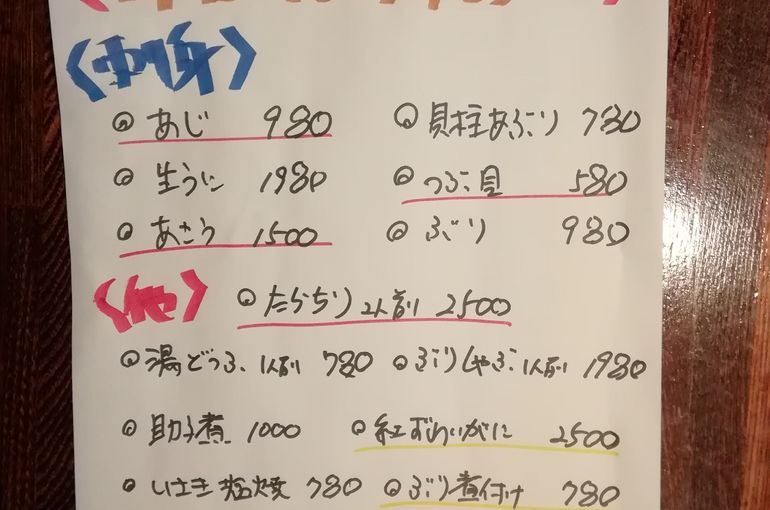 〈刺身〉
◎あじ 980 ◎貝柱あぶり 780
◎生うに 1980 ◎つぶ貝 580
◎あこう 1500 ◎ぶり 980
〈他〉 ◎たらちり 2人前 2500
◎湯どうふ 1人前 780 ◎ぶりしゃぶ 1人前 1980
◎助子煮 1000 ◎紅ずわいがに 2500
◎いさき塩焼 780 ◎ぶり煮付け 780